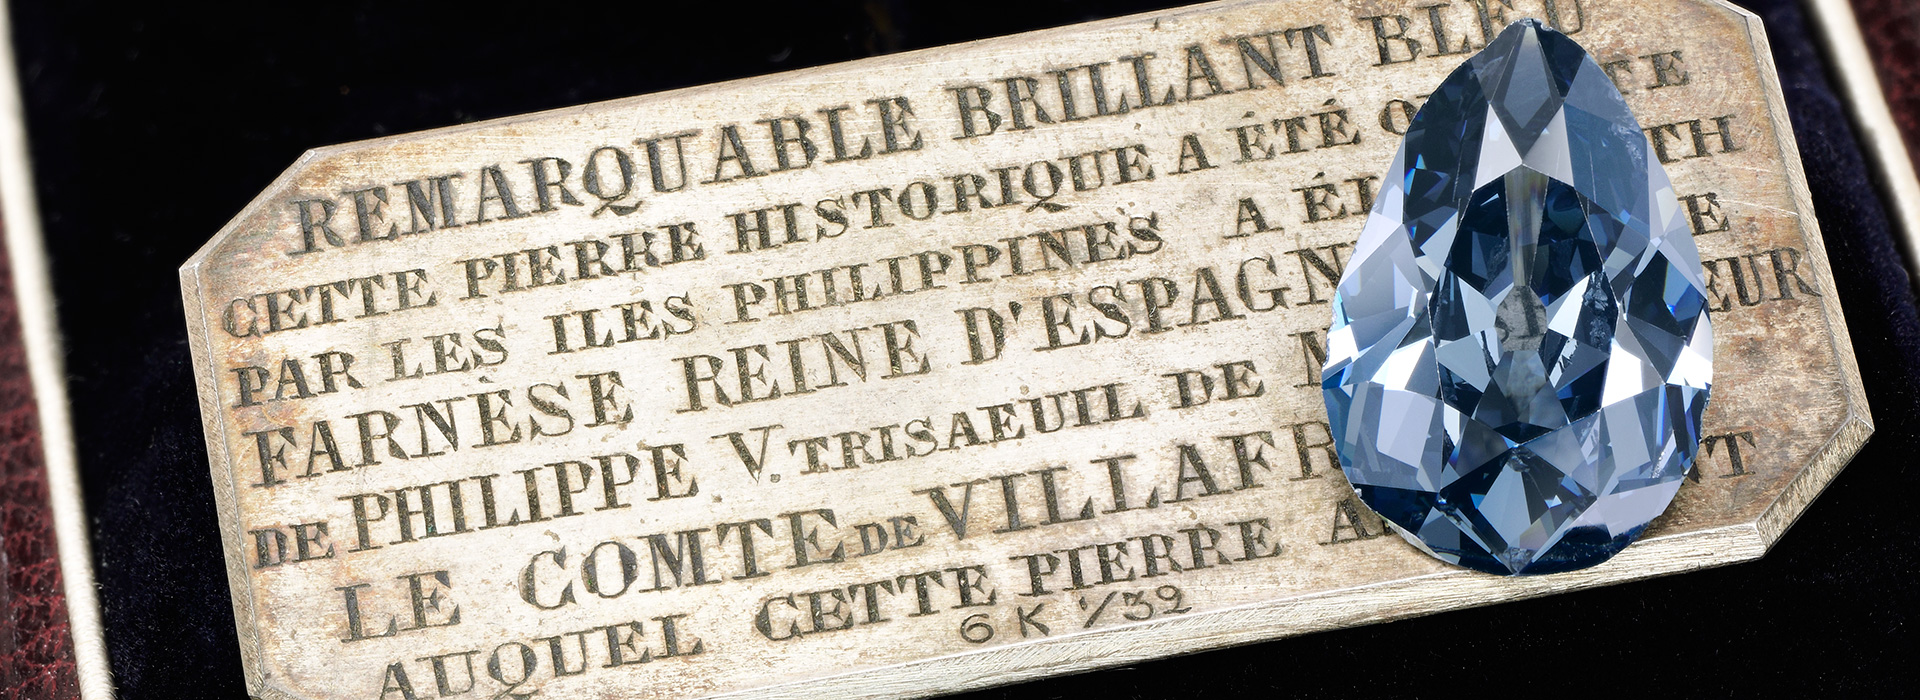 REMARQUABLE BRILLANT BLEU
CETTE PIERRE HISTORIQUE A ÉTÉ
PAR LES ILES PHILIPPINES A
FARNÈSE REINE D'ESPAGN
DE PHILIPPE V. TRISAEUIL DE
LE COMTE DE VILLAFR
AUQUEL CETTE PIERRE
6 K 1/32